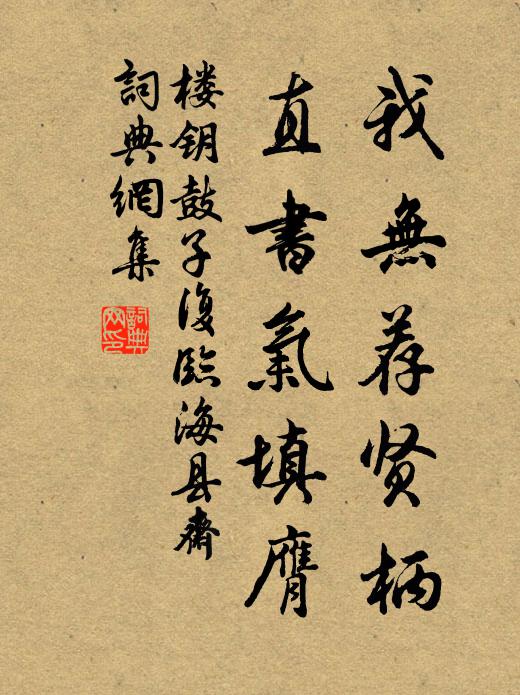 我無荐贤柄
直書氣填膺
楼钥鼓子復臨海县齋
詞典網集
詞典网印